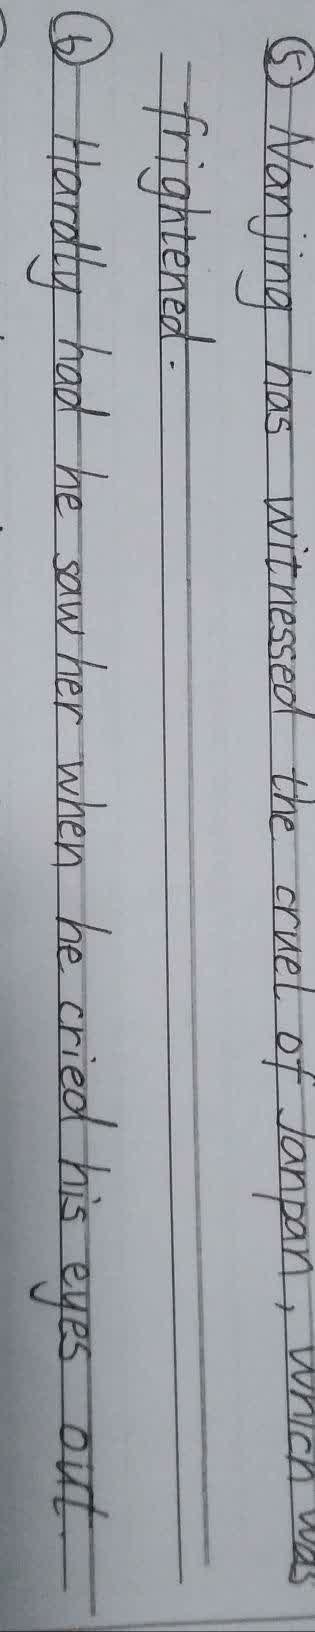 ⑤ Nanjing has witnessed the cruel of Janpan, which was
frightened.
⑥ Hardly had he saw her when he cried his eyes out.